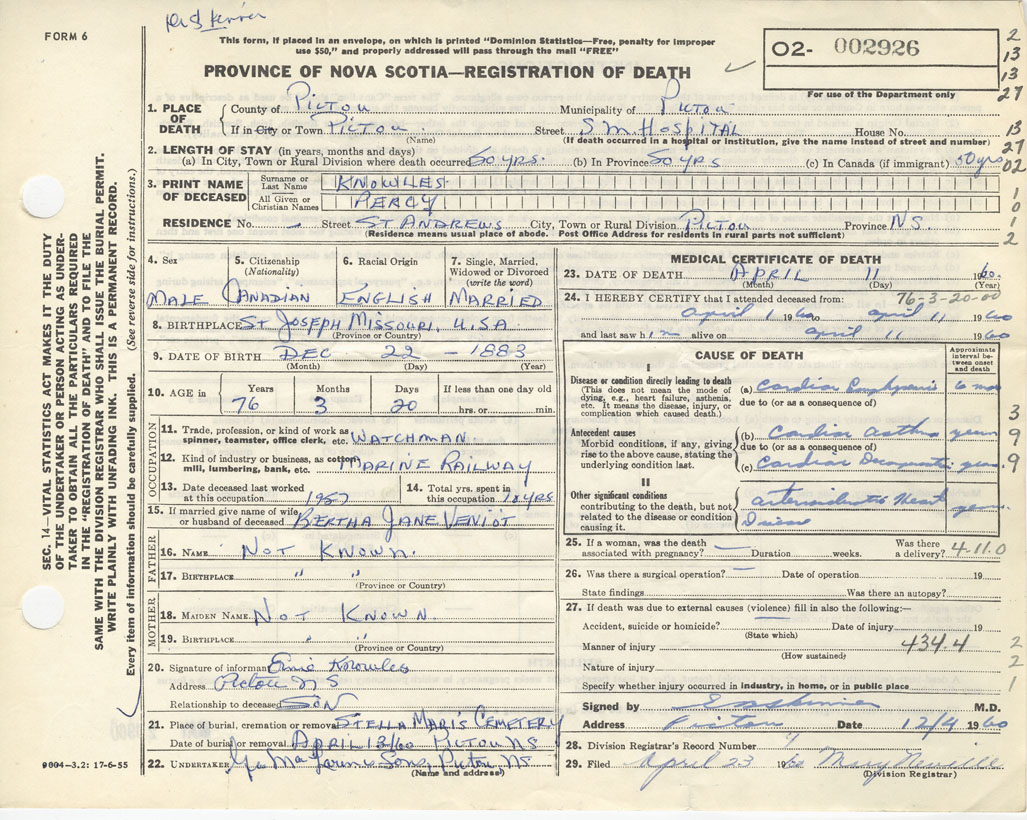 FORM 6
This form, if placed in an envelope, on which is printed "Dominion Statistics—Free, penalty for improper
use $50," and properly addressed will pass through the mail "FREE"
PROVINCE OF NOVA SCOTIA—REGISTRATION OF DEATH
02- 002926
For use of the Department only
2
13
13
27
13
27
02
1
0
1
2
1. PLACE OF DEATH County of PICTOU Municipality of PICTOU
If in City or Town PICTOU. (Name) Street S M HOSPITAL House No.
(If death occurred in a hospital or Institution, give the name instead of street and number)
2. LENGTH OF STAY (in years, months and days)
(a) In City, Town or Rural Division where death occurred 50 YRS. (b) In Province 50 YRS (c) In Canada (if immigrant) 50 yrs
3. PRINT NAME OF DECEASED Surname or Last Name KNOWLES
All Given or Christian Names PERCY
RESIDENCE No. — Street ST ANDREWS City, Town or Rural Division PICTOU Province NS.
(Residence means usual place of abode. Post Office Address for residents in rural parts not sufficient)
4. Sex 5. Citizenship (Nationality) 6. Racial Origin 7. Single, Married, Widowed or Divorced (write the word)
MALE CANADIAN ENGLISH MARRIED
8. BIRTHPLACE ST JOSEPH MISSOURI, U.S.A
(Province or Country)
9. DATE OF BIRTH DEC 22 – 1883
(Month) (Day) (Year)
10. AGE in Years Months Days If less than one day old
76 3 20 hrs. or min.
OCCUPATION
11. Trade, profession, or kind of work as spinner, teamster, office clerk, etc. WATCHMAN
12. Kind of industry or business, as cotton mill, lumbering, bank, etc. MARINE RAILWAY
13. Date deceased last worked at this occupation 14. Total yrs. spent in this occupation YRS
15. If married give name of wife or husband of deceased BERTHA JANE VENIOT
FATHER
16. NAME NOT KNOWN.
17. BIRTHPLACE " "
(Province or Country)
MOTHER
18. MAIDEN NAME NOT KNOWN.
19. BIRTHPLACE " "
(Province or Country)
20. Signature of informant Knowles
Address Pictou N S
Relationship to deceased SON
21. Place of burial, cremation or removal STELLA MARIS CEMETERY
Date of burial or removal APRIL 13/60 PICTOU NS
22. UNDERTAKER Sons, Pictou NS
(Name and address)
9004—3.2: 17-6-55
MEDICAL CERTIFICATE OF DEATH
23. DATE OF DEATH APRIL 11 1960.
(Month) (Day) (Year)
24. I HEREBY CERTIFY that I attended deceased from: 76-3-20-00
april 1 1960 to april 11 1960
and last saw him alive on april 11 1960
CAUSE OF DEATH
Approximate interval between onset and death
I
Disease or condition directly leading to death
(This does not mean the mode of dying, e.g., heart failure, asthenia, etc. It means the disease, injury, or complication which caused death.)
(a) Cardiac 6 mos
due to (or as a consequence of)
Antecedent causes
Morbid conditions, if any, giving rise to the above cause, stating the underlying condition last.
(b) Cardiac Asthma years
due to (or as a consequence of)
(c) Cardiac years.
3
9
9
II
Other significant conditions
contributing to the death, but not related to the disease or condition causing it.
Heart Disease years
25. If a woman, was the death associated with pregnancy? — Duration weeks. Was there a delivery? 4-11.0
26. Was there a surgical operation? — Date of operation 19
State findings Was there an autopsy?
27. If death was due to external causes (violence) fill in also the following:—
Accident, suicide or homicide? Date of injury 19
(State which)
Manner of injury 434.4 2
(How sustained)
Nature of injury 2
Specify whether injury occurred in industry, in home, or in public place 1
Signed by M.D.
Address Pictou Date 12/4 1960
28. Division Registrar's Record Number
29. Filed April 23 1960
(Division Registrar)
SEC. 14—VITAL STATISTICS ACT MAKES IT THE DUTY
OF THE UNDERTAKER OR PERSON ACTING AS UNDER-
TAKER TO OBTAIN ALL THE PARTICULARS REQUIRED
IN THE "REGISTRATION OF DEATH" AND TO FILE THE
SAME WITH THE DIVISION REGISTRAR WHO SHALL ISSUE THE BURIAL PERMIT.
WRITE PLAINLY WITH UNFADING INK. THIS IS A PERMANENT RECORD.
Every item of information should be carefully supplied. (See reverse side for instructions.)